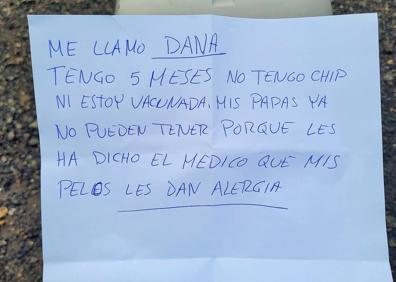 ME LLAMO DANA
TENGO 5 MESES NO TENGO CHIP
NI ESTOY VACUNADA. MIS PAPAS YA
NO PUEDEN TENER PORQUE LES
HA DICHO EL MEDICO QUE MIS
PELOS LES DAN ALERGIA